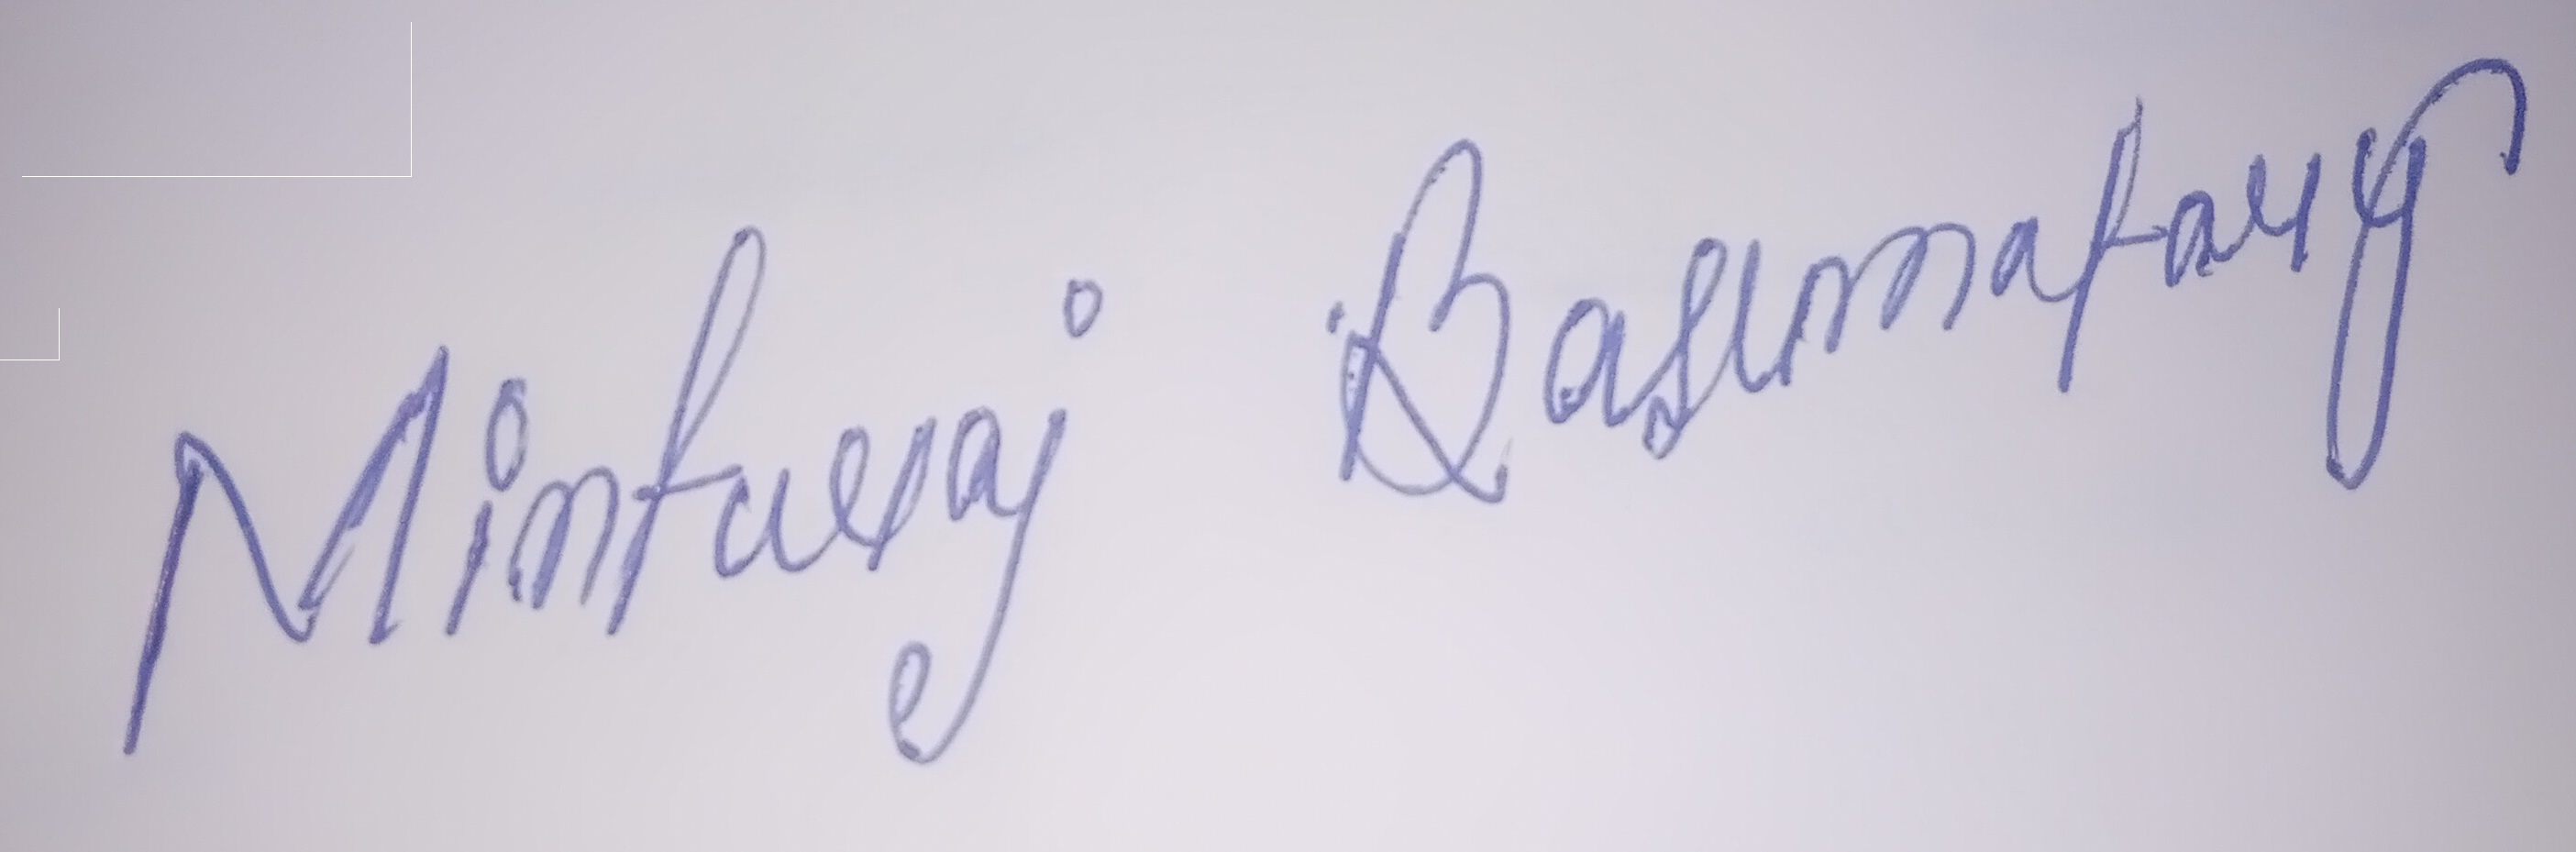 Minturaj Basumatary